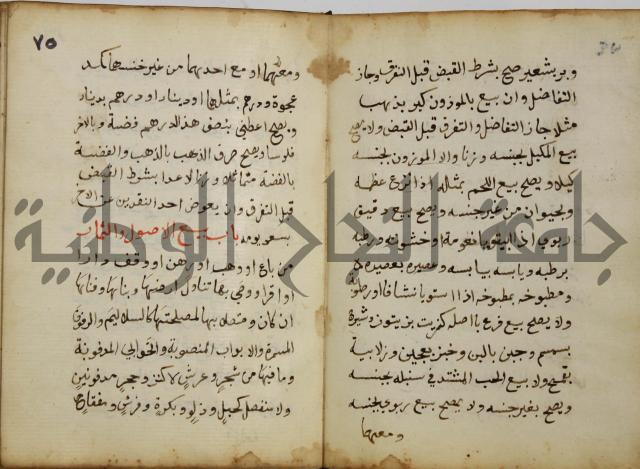 وبر بشعير صح بشرط القبض قبل التفرق وجاز
التفاضل وان بيع بالموزون كبر بذهب
مثلا جاز التفاضل والتفرق قبل القبض ولا يصح
بيع المكيل بجنسه وزنا ولا الموزون بجنسه
كيلا ويصح بيع اللحم بمثله اذا نزع عظمه
وبحيوان من غير جنسه ويصح بيع دقيق
ربوي اذا استويا نعومة او خشونة ورطبه
برطبه ويابسه بيابسه وعصيره بعصيره
ومطبوخه بمطبوخه اذا استويا نشافا او رطوبة
ولا يصح بيع فرع باصله كزيت بزيتون وشيرج
بسمسم وجبن بالبن وخبز بعجين وزلابية
بقمح ولا بيع الحب المشتد في سنبله بجنسه
ويصح بغير جنسه ولا يصح بيع ربوي بجنسه
ومعهما
٧٥
ومعهما او مع احدهما من غير جنسهما كمد
عجوة ودرهم بمثلها او دينار او درهم بدينار
ويصح اعطني بنصف هذا الدرهم فضة وبالاخر
فلوسا ويصح صرف الذهب بالذهب والفضة
بالفضة متماثلا وزنا لا عدا بشرط القبض
قبل التفرق وان يعوض احد النقدين عن الاخر
بسعر يومه باب بيع الاصول والثمار
من باع او وهب او رهن او وقف دارا
او اقر او وصى بها تناول ارضها وبناها وفناها
ان كان ومتصلا بها لمصلحتها كالسلاليم والرفوف
المسمرة والابواب المنصوبة والخوابي المدفونة
وما فيها من شجر وعرش لا كنز وحجر مدفونين
ولا منفصل كحبل ودلو وبكرة وفرش ومفتاح
جامعة النجاح الوطنية